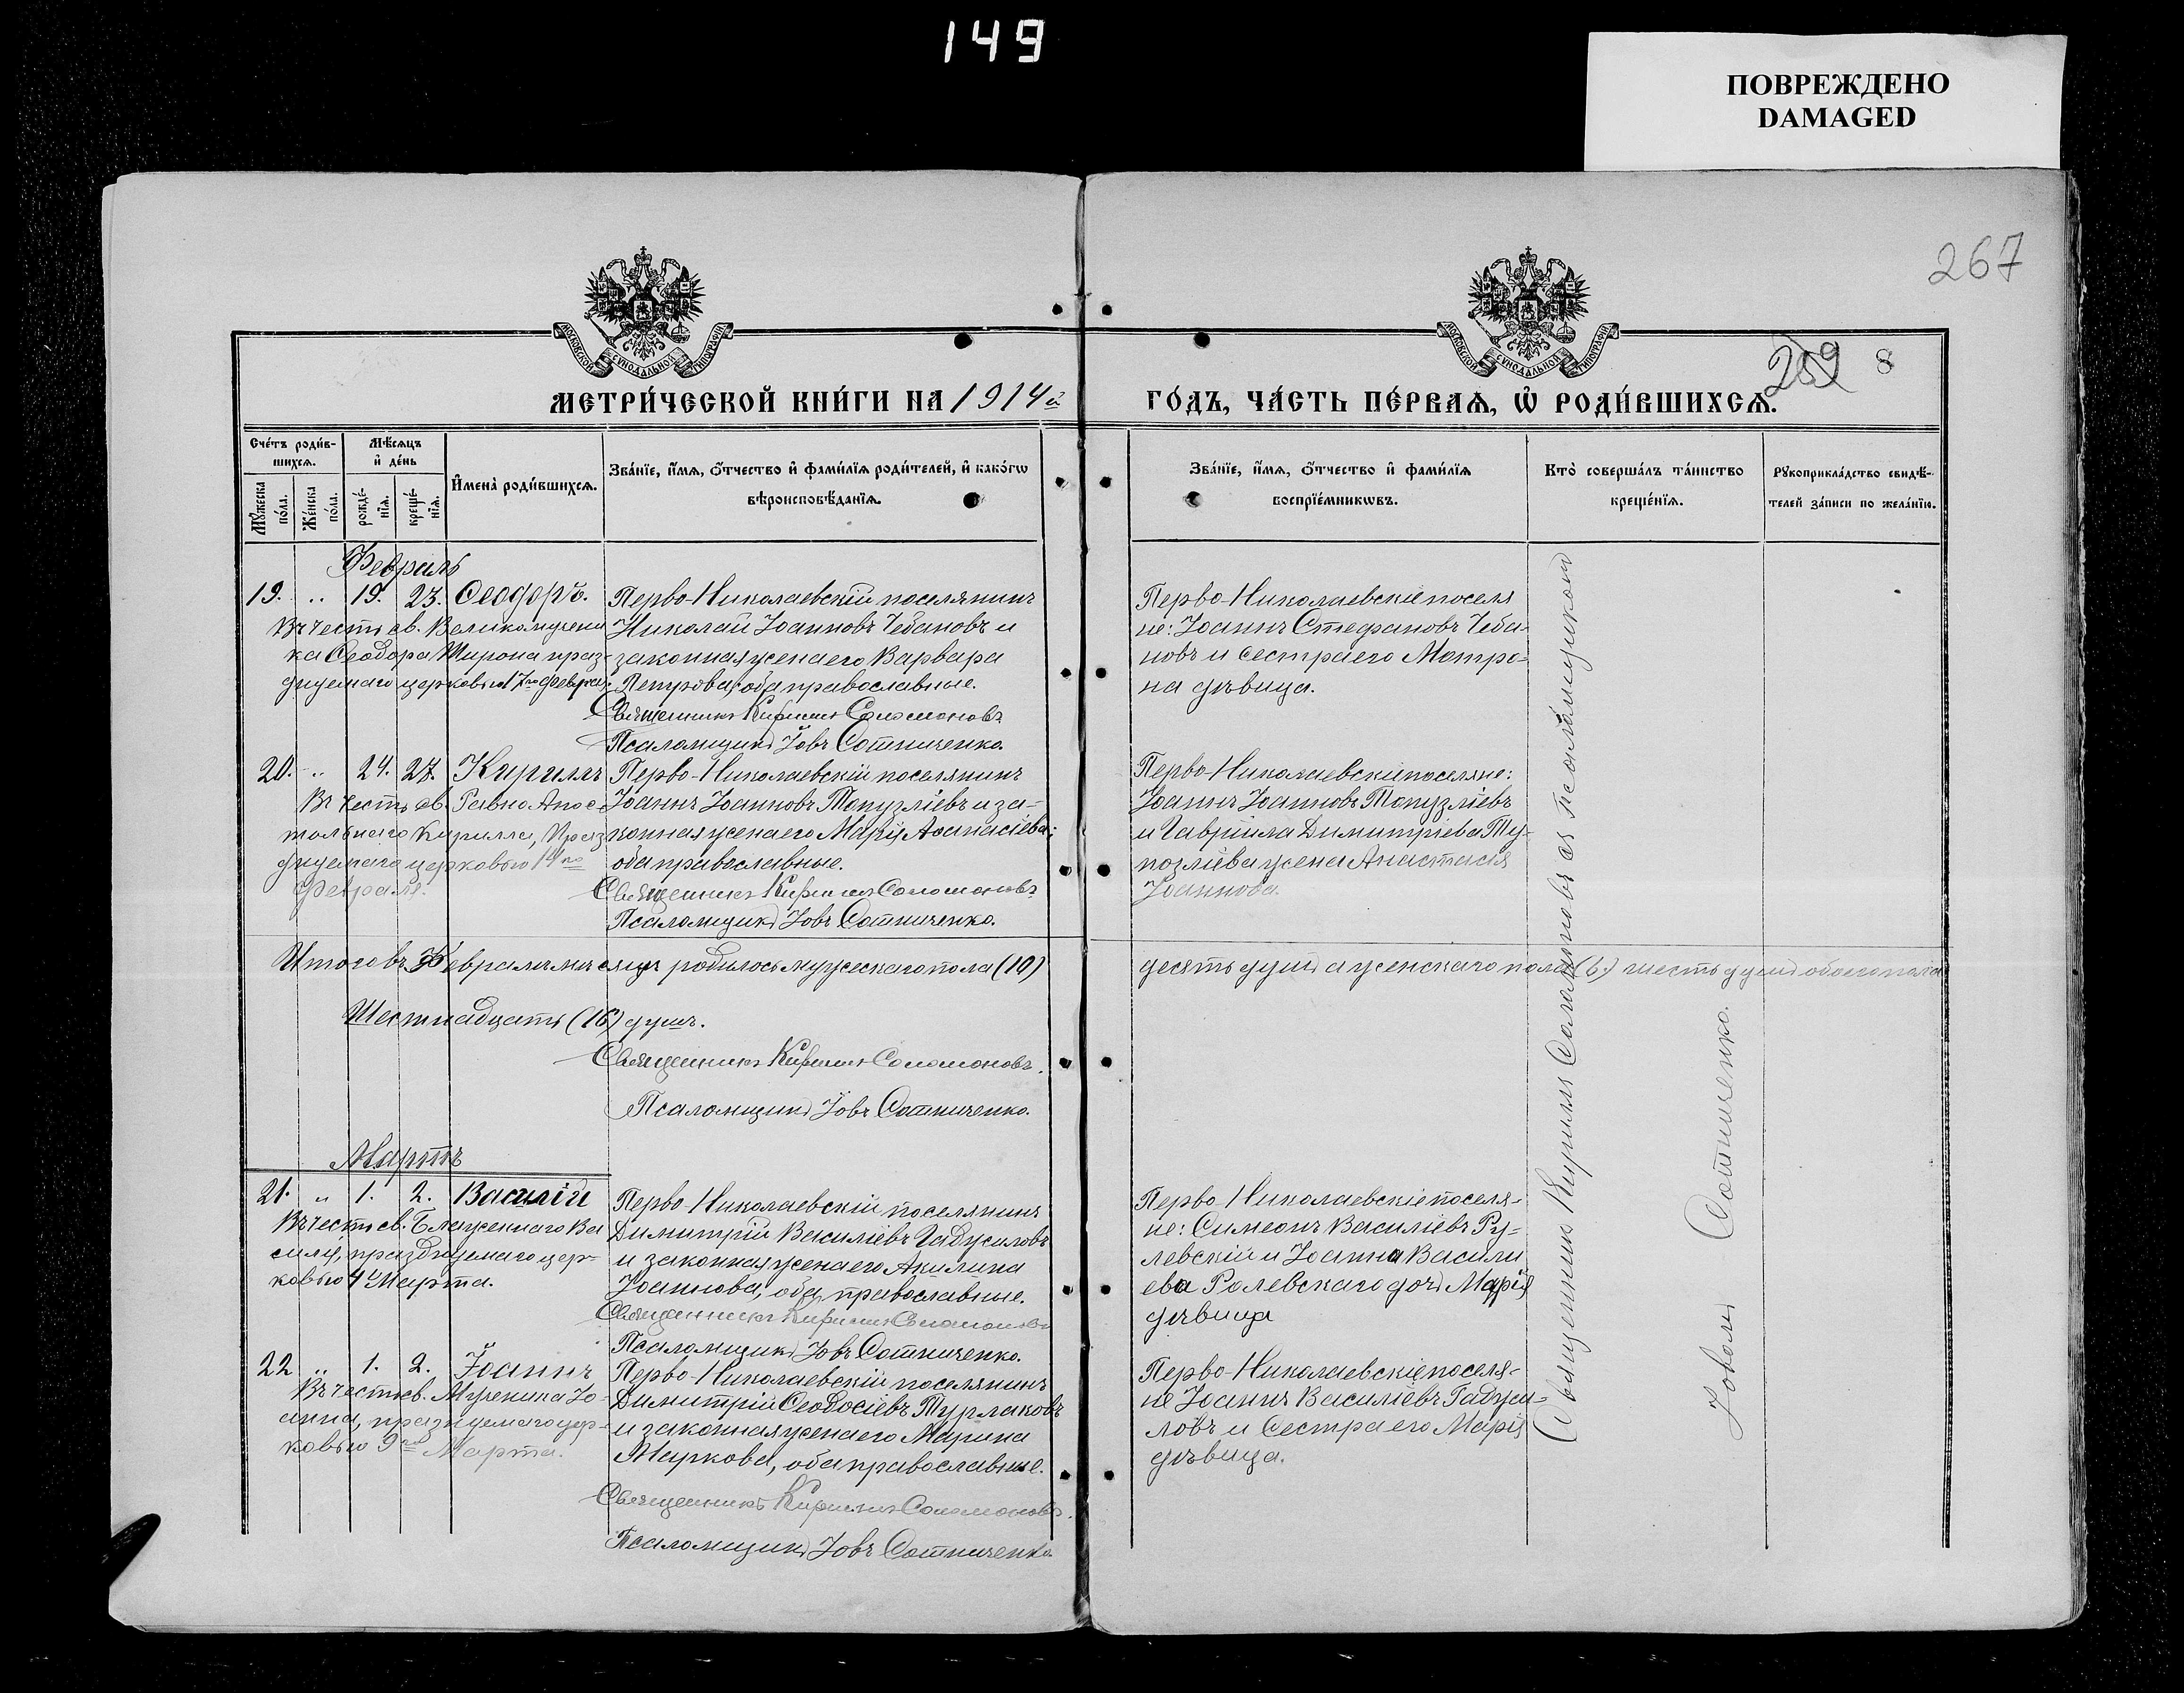 149
ПОВРЕЖДЕНО
DAMAGED
267
МОСКОВСКОЙ СѴНОДАЛЬНОЙ ТИПОГРАФІИ
МОСКОВСКОЙ СѴНОДАЛЬНОЙ ТИПОГРАФІИ
269 8
МЕТРИ́ЧЕСКОЙ КНИ́ГИ НА 1914й
ГО́ДЪ, ЧА́СТЬ ПЕ́РВАѦ, Ѡ҆ РОДИ́ВШИХСѦ.
Сче́тъ роди́в-
шихсѧ.
Мꙋ́жеска по́ла.
Же́нска по́ла.
Мѣ́сѧцъ
и҆ де́нь
рожде́-
нїѧ.
креще́-
нїѧ.
И҆мена̀ роди́вшихсѧ.
Зва́нїе, и҆́мѧ, ѻ҆́тчество и҆ фами́лїѧ роди́телей, и҆ како́гѡ
вѣроисповѣ́данїѧ.
Зва́нїе, и҆́мѧ, ѻ҆́тчество и҆ фами́лїѧ
воспрїе́мникѡвъ.
Кто̀ соверша́лъ та́инство
креще́нїѧ.
Рꙋкоприкла́дство свидѣ́-
телей за́писи по жела́нїю.
Февраль
19. „ 19. 23. Ѳеодоръ.
Въ честь св. Великомучени
ка Ѳеодора Тирона праз-
днуемаго церковью 17го Февраля
Перво-Николаевскій поселянинъ
Николай Іоанновъ Чебановъ и
законная жена его Варвара
Петрова, оба православные.
Священникъ Кириллъ Соломоновъ
Псаломщикъ Іовъ Сотниченко.
Перво-Николаевскіе поселя
не: Іоаннъ Стефановъ Чеба-
новъ и сестра его Матро-
на дѣвица.
20. „ 24. 27. Кириллъ
Въ честь св. Равно Апос-
тольнаго Кирилла, Праз
днуемаго церковью 14го
Февраля.
Перво-Николаевскій поселянинъ
Іоаннъ Іоанновъ Топузліевъ и за-
конная жена его Марія Аѳанасіева;
оба православные.
Священникъ Кириллъ Соломоновъ
Псаломщикъ Іовъ Сотниченко.
Перво-Николаевскіе поселяне:
Іоаннъ Іоанновъ Топузліевъ
и Гавріила Димитріева Ту-
позліева жена Анастасія
Іоаннова.
Итого въ Февралѣ мѣсяцѣ родилось мужескаго пола (10)
десять душъ а женскаго пола (6.) шесть душъ обоего пола
Шестнадцать (16) душъ.
Священникъ Кириллъ Соломоновъ.
Псаломщикъ Іовъ Сотниченко.
Мартъ
21. „ 1. 2. Василій
Въ честь св. Блаженнаго Ва
силія, празднуемаго цер-
ковью 4 Марта.
Перво Николаевскій поселянинъ
Димитрій Василіевъ Гадужиловъ
и законная жена его Акилина
Іоаннова, оба православные.
Священникъ Кириллъ Соломоновъ
Псаломщикъ Іовъ Сотниченко.
Перво Николаевскіе поселя-
не: Симеонъ Василіевъ Ру-
левскій и Іоанна Васили
ева Ролевскаго дочь Марія
дѣвица
22 „ 1. 2. Іоаннъ
Въ честь св. Мученика Іо-
анна, празднуемаго цер-
ковью 9го Марта.
Перво-Николаевскій поселянинъ
Димитрій Ѳеодосіевъ Турлаковъ
и законная жена его Марина
Маркова, оба православные.
Священникъ Кириллъ Соломоновъ.
Псаломщикъ Іовъ Сотниченко.
Перво-Николаевскіе поселя-
не Іоаннъ Василіевъ Гадужи-
ловъ и Сестра его Марія
дѣвица.
Священникъ Кириллъ Соломоновъ съ псаломщикомъ
Іовомъ Сотниченко.